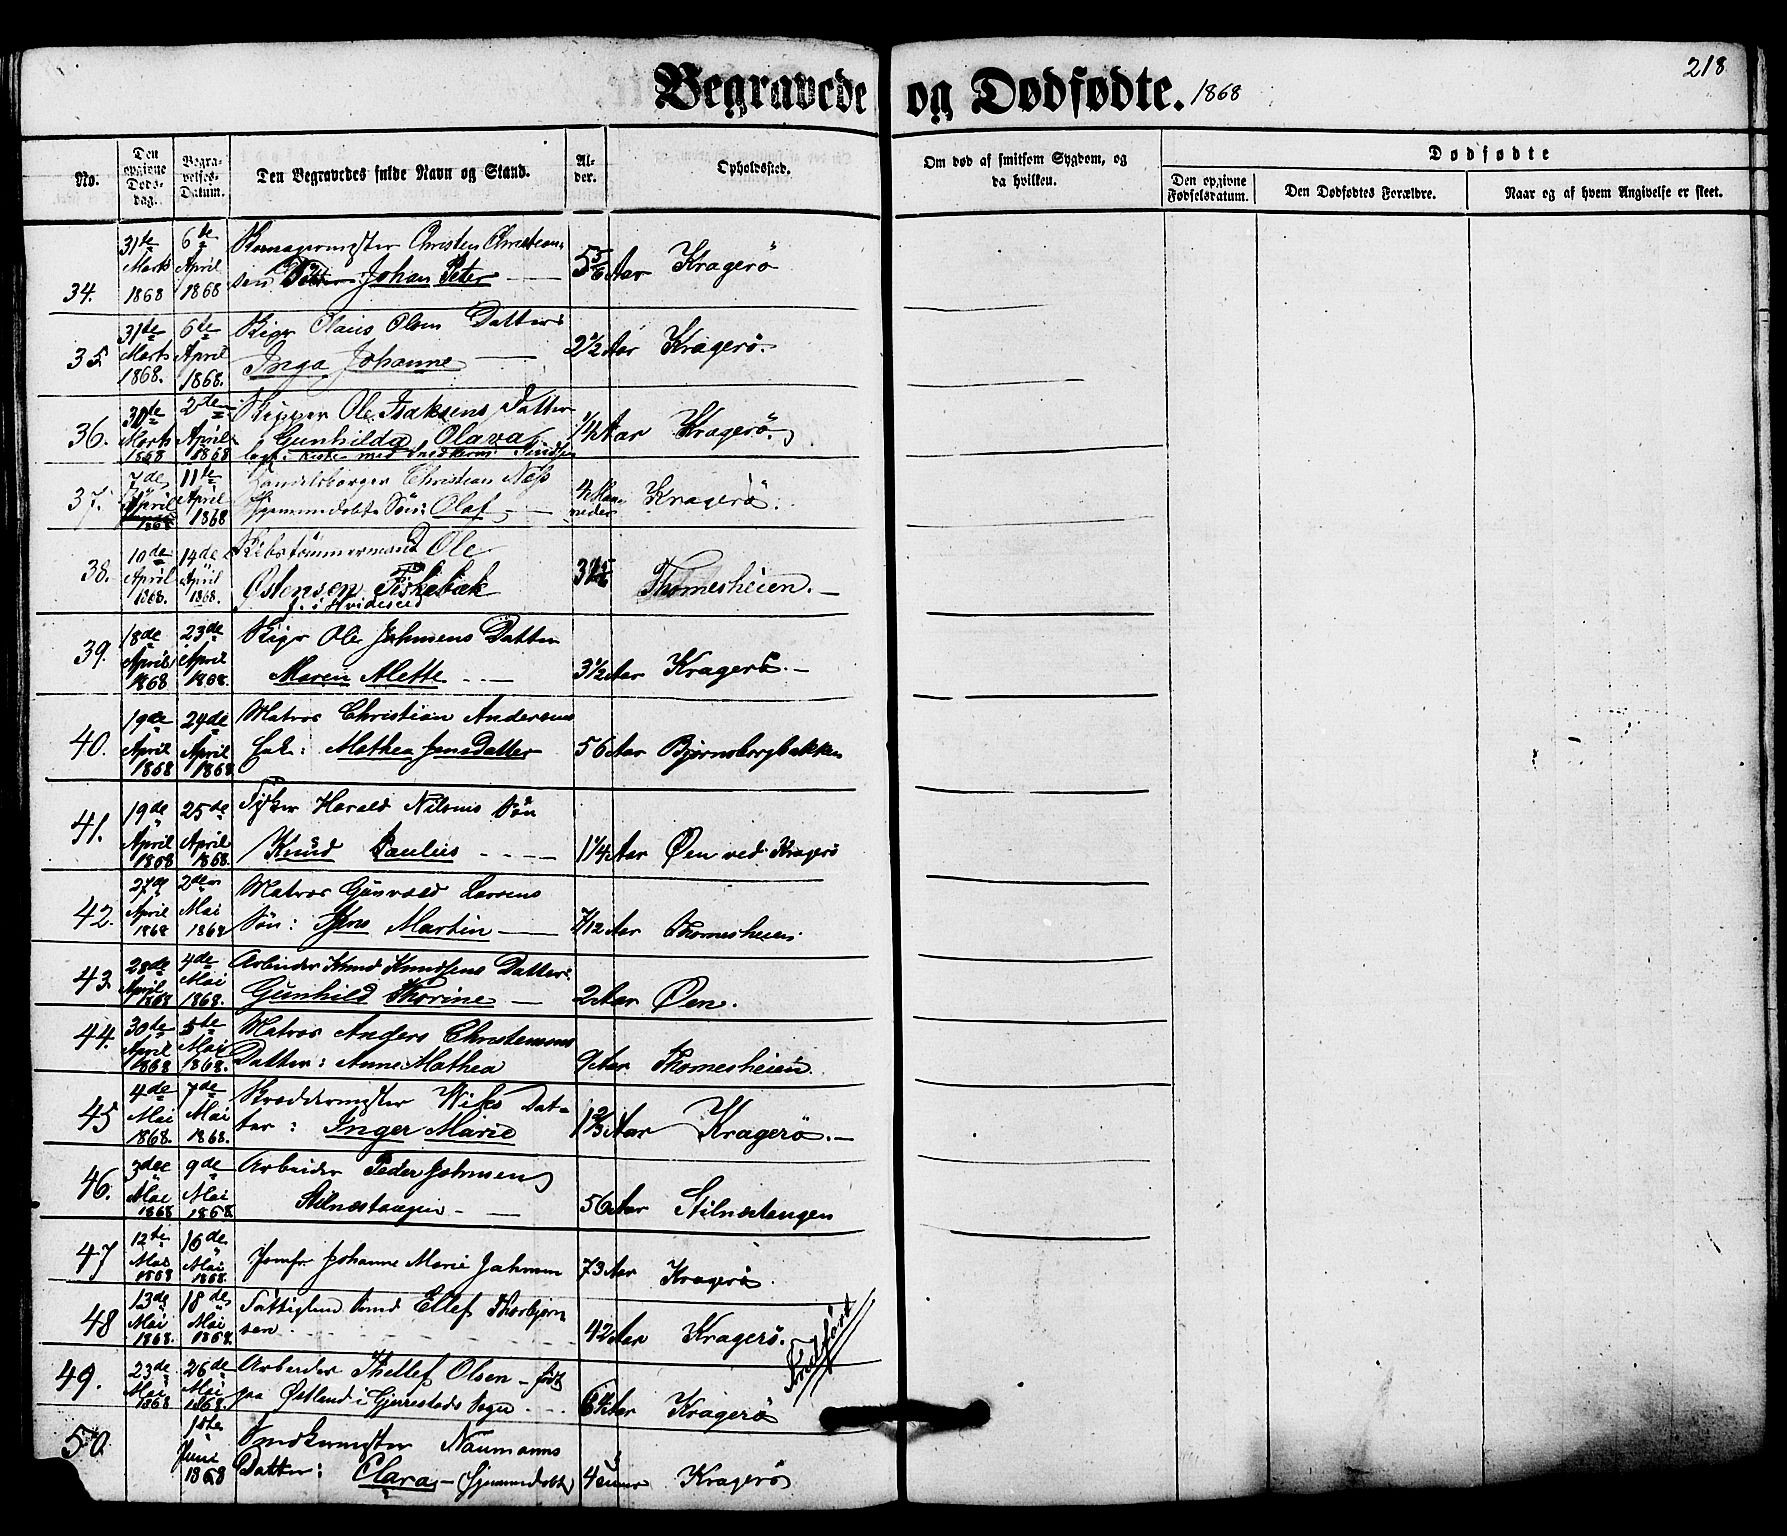 218
Begravede og Dødfødte. 1868
No.
Den opgivne Døds-dag.
Begra-velses-Datum.
Den Begravedes fulde Navn og Stand.
Al-der.
Opholdssted.
Om død af smitsom Sygdom, og da hvilken.
Dødfødte
Den opgivne Fødselsdatum.
Den Dødfødtes Forældre.
Naar og af hvem Angivelse er skeet.
34. 31te Marts 1868 6te April 1868 Christen Christian-
sen Johan Peter 5 5/6 Aar Kragerö
35 31te Marts 1868. 6te April 1868. Olaus Olsen Datter:
Inga Johanne 2 1/2 Aar Kragerö.
36. 30te Marts 1868 2den April 1868 Skipper Ole Isaksens Datter
Gunhilda Olava 1/4 Aar Kragerö.
37. 7de April 1868 11te April 1868 Handelsborger Christian Næss
hjemmedöbte Sön: Olaf 4 Maa-neder Kragerö.
38. 10de April 1868. 14de April 1868. Skibstömmermand Ole
Østensen Fiskebæk Thomesheien.
f. i Hvideseid
39. 18de April 1868 23de April 1868. Ole Johnsens Datter
Maren Alette 3 1/2 Aar Kragerö.
40. 19de April 1868 24de April 1868 Matros Christian Andersens
Enke: Mathea Jensdatter 56 Aar Bjørnsborgbakken
41. 19de April 1868 25de April 1868. Harald Nilsens Sön
Knud Paulus 1 1/4 Aar Øen ved Kragerö
42. 27de April 1868 2den Mai 1868 Matros Gunvald Larsens
Sön: Jens Martin 7/12 Aar Thomesheien
43. 28de April 1868 4de Mai 1868. Arbeider Knud Knudsens Datter:
Gunhild Thorine 2 Aar Øen.
44. 30te April 1868 5te Mai 1868. Matros Anders Christensens
Datter: Anne Mathea 9 Aar Thomesheien.
45 4de Mai 1868. 7de Mai 1868. Skreddermester Dat-
ter: Inger Marie 1 2/3 Aar Kragerö.
46. 3die Mai 1868 9de Mai 1868 Arbeider Peder Johnsen
Stilnestangen 56 Aar Stilnestangen
47 12te Mai 1868 16de Mai 1868. Jomfr Johanne Marie 73 Aar Kragerö.
48 13de Mai 1868. 18de Mai 1868. Fattiglem Ellef Thorbjørn-
sen 42 Aar Kragerö.
Indført
49. 23de Mai 1868 26de Mai 1868. Arbeider Thellef Olsen - födt
paa Østlund i Gjerrestads Sogn Aar Kragerö
50 1ste Juni 1868 Naumanns
Datter: Clara - (hjemmedöbt) 4 Kragerö